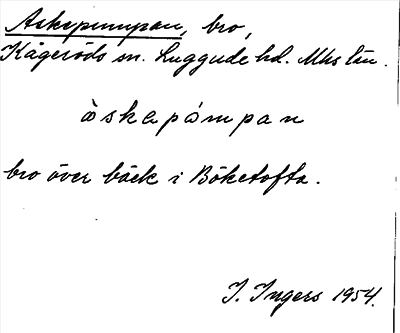 Askepumpan, bro,
Kågeröds sn. Luggude hd. Mhs län.
àskepámpan
bro över bäck i Böketofta.
I. Ingers 1954.